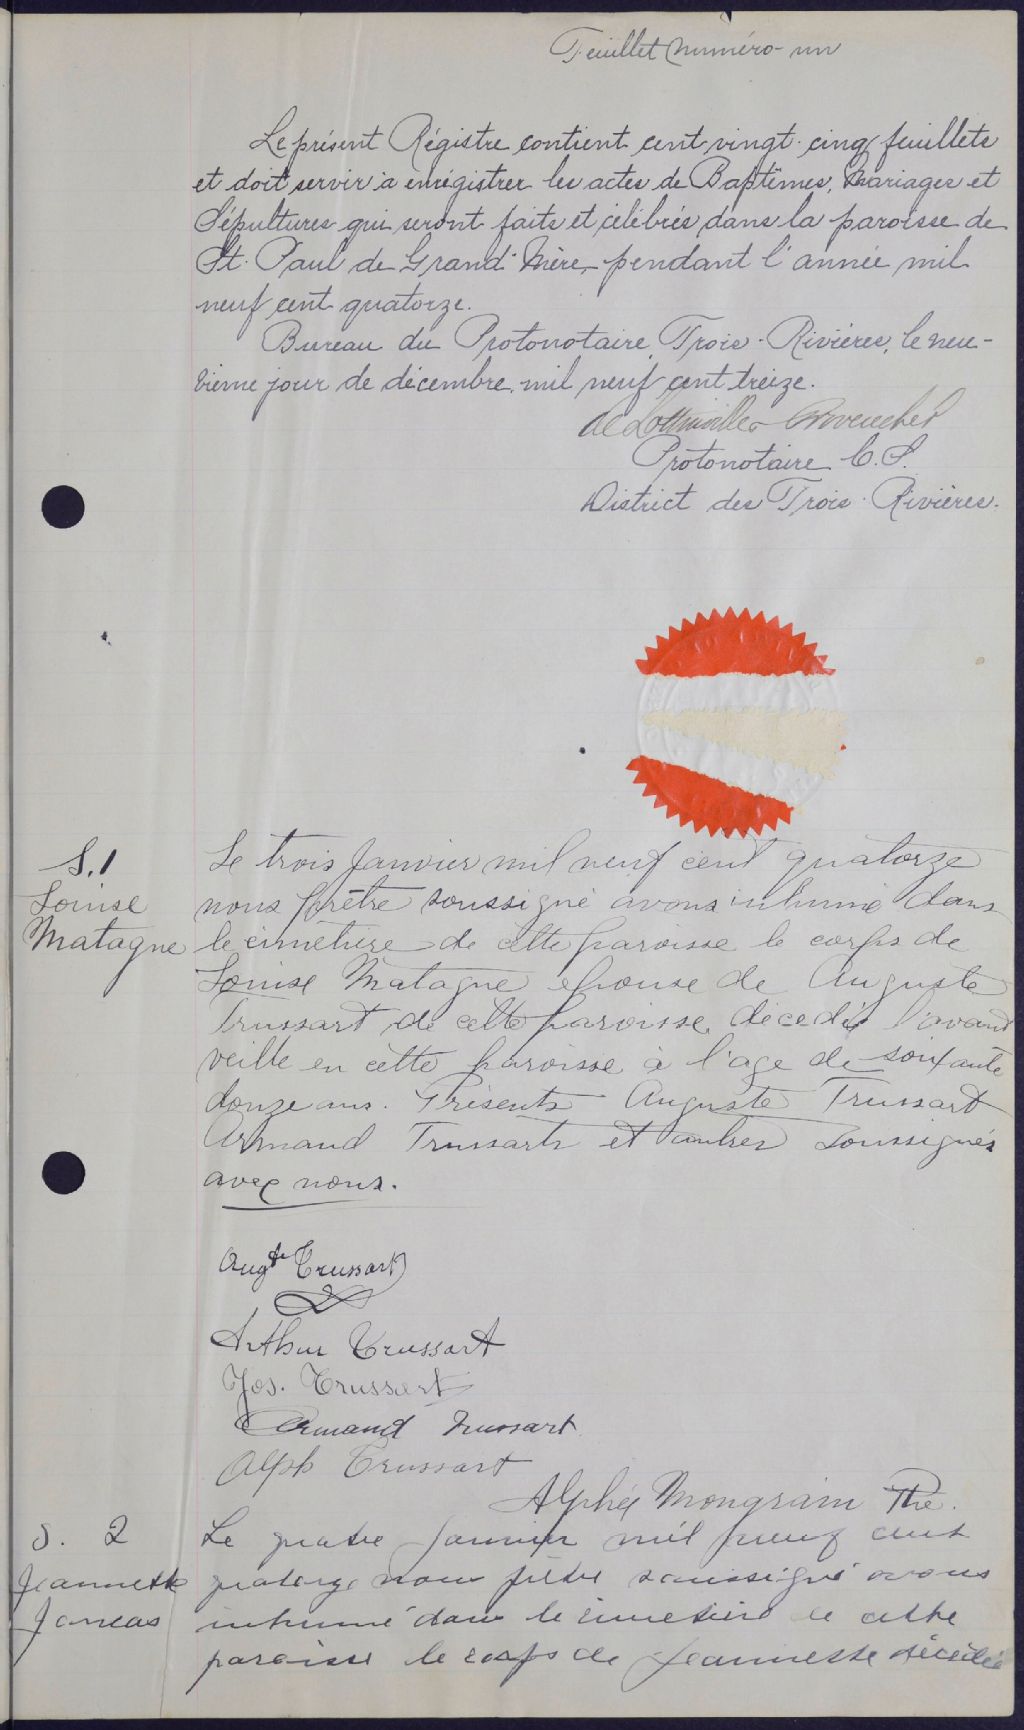 Feuillet numéro un
Le présent Régistre contient cent vingt-cinq feuillets
et doit servir à enrégistrer les actes de Baptêmes, Mariages et
Sépultures qui seront faits et célébrés dans la paroisse de
St. Paul de Grand'Mère, pendant l'année mil
neuf cent quatorze.
Bureau du Protonotaire, Trois-Rivières, le neu-
vième jour de décembre mil neuf cent treize.
Protonotaire C.S.
District des Trois-Rivières.
S.1
Louise
Matagne
Le trois Janvier mil neuf cent quatorze
nous prêtre soussigné avons inhumé dans
le cimétière de cette paroisse le corps de
Louise Matagne epouse de Auguste
Trussart de cette paroisse, décedée l'avant
veille en cette paroisse à l'age de soixante
douze ans. Présents Auguste Trussart
Armand Trussart et autres soussignés
avec nous.
Augte Trussart
Arthur Trussart
Jos. Trussart
Armand Trussart
Alph Trussart
Alphée Mongrain Ptre.
S. 2
Jeannette
Janeas
Le quatre Janvier mil neuf cent
quatorze nous prêtre soussigné avons
inhumé dans le cimetiere de cette
paroisse le corps de Jeannette décédée